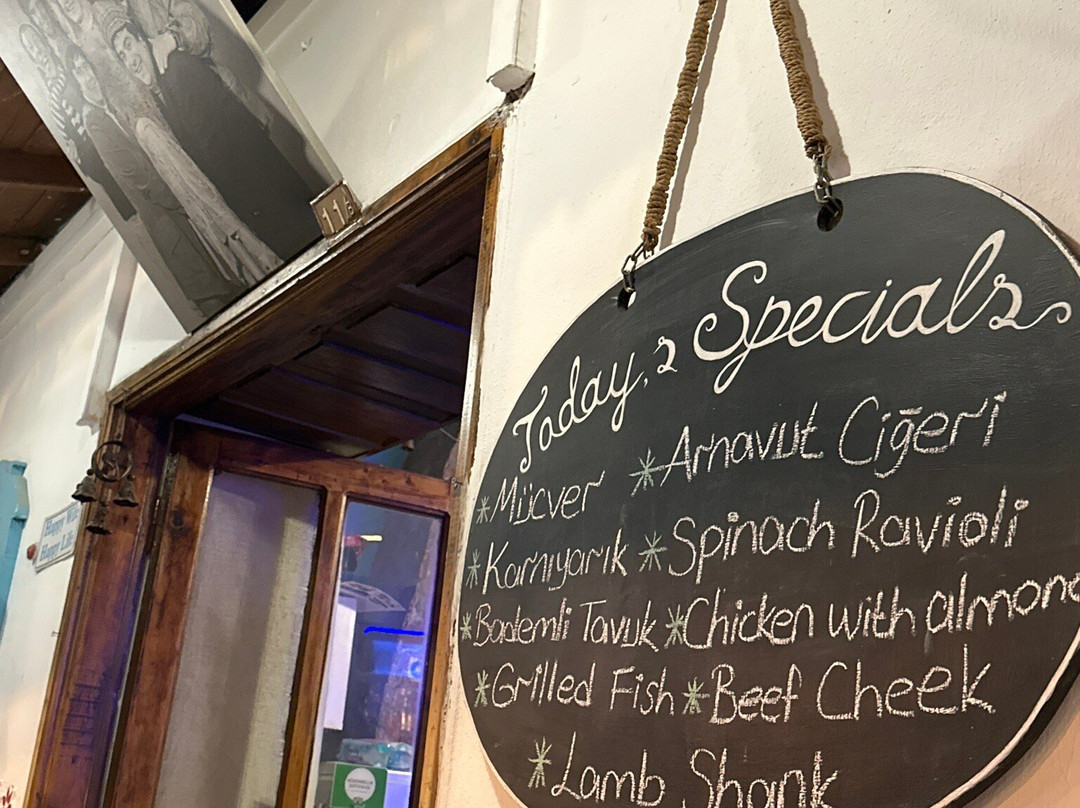 116
Happy Wife
Happy Life
Today,s Specials
*Mücver *Arnavut Ciğeri
*Karnıyarık *Spinach Ravioli
*Bademli Tavuk *Chicken with almond
*Grilled Fish *Beef Cheek
*Lamb Shank